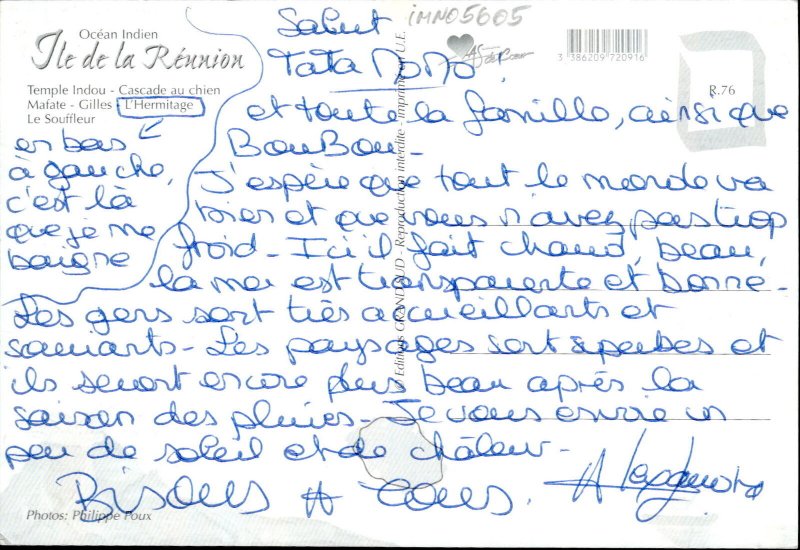 Océan Indien
Ile de la Réunion
Temple Indou - Cascade au chien
Mafate - Gilles - L'Hermitage
Le Souffleur
en bas
à gauche,
c'est là
que je me
baigne
imno5605
As de Cœur
3 386209 720916
R.76
Salut
Tata NONO !
et toute la famille, ainsi que
BouBou -
J'espère que tout le monde va
bien et que vous n'avez pas trop
froid - Ici il fait chaud, beau,
la mer est transparente et bonne -
Les gens sont très accueillants et
souriants - Les paysages sont superbes et
ils seront encore plus beau après la
saison des pluies - Je vous envoie un
peu de soleil et de chaleur -
Bisous A tous.
© Editions GRAND SUD - Reproduction interdite - Imprimé en U.E.
Photos: Philippe Poux